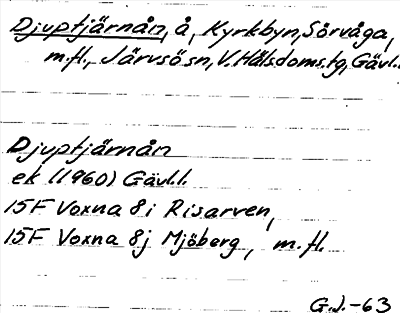 Djuptjärnån, å, Kyrkbyn, Sörvåga,
m.fl., Järvsö sn, V. Hälsdoms. tg, Gävl.l.
Djuptjärnån
ek (1960) Gävl.l.
15F Voxna 8i Risarven,
15F Voxna 8j Mjöberg, m.fl.
G.J.-63